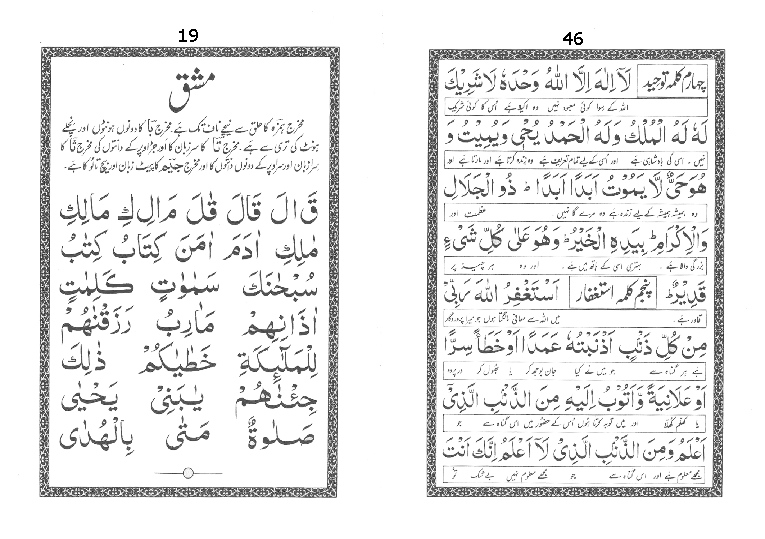 19
مشق
مخرج ہمزہ کا حلق سے نیچے ناف تک ہے مخرج بَا کا دونوں ہونٹوں اور نچلے
ہونٹ کی تری سے ہے۔ مخرج تَا کا سر زبان کا اور جڑ اوپر کے دانتوں کی مخرج ثَا کا
سر زبان اور سر اوپر کے دونوں دانتوں کا اور مخرج جِیْم کا پیٹ زبان اور بیچ تالو کا ہے۔
قَ الَ قَالَ قٰلَ مَ الِ كِ مَالِكِ
مٰلِكِ اٰدَمَ اٰمَنَ كِتَابُ كِتٰبُ
سُبْحٰنَكَ سَمٰوٰتٍ كَلِمٰتٍ
اٰذَانِهِمْ مَاٰرِبُ رَزَقْنٰهُمْ
لِلْمَلٰٓئِكَةِ خَطٰيٰكُمْ ذٰلِكَ
جِئْنٰهُمْ يٰبَنِىْ يَحْيٰى
صَلٰوةٌ مَتٰى بِالْهُدٰى
46
چہارم کلمہ توحید لَآ اِلٰهَ اِلَّا اللهُ وَحْدَهٗ لَا شَرِيْكَ
اللہ کے سوا کوئی معبود نہیں وہ اکیلا ہے اُس کا کوئی شریک
لَهٗ لَهُ الْمُلْكُ وَلَهُ الْحَمْدُ يُحْىٖ وَيُمِيْتُ وَ
نہیں۔ اسی کی بادشاہی ہے اور اُسی کے لیے تمام تعریف ہے وہ زندہ کرتا ہے اور مارتا ہے اور
هُوَ حَىٌّ لَّا يَمُوْتُ اَبَدًا اَبَدًا ؕ ذُو الْجَلَالِ
وہ ہمیشہ ہمیشہ کے لیے زندہ ہے وہ مرے گا نہیں عظمت اور
وَالْاِكْرَامِ ؕ بِيَدِهِ الْخَيْرُ ؕ وَهُوَ عَلٰى كُلِّ شَىْءٍ
بزرگی والا ہے۔ بہتری اسی کے ہاتھ میں ہے۔ اور وہ ہر چیز پر
قَدِيْرٌ ؕ پنجم کلمہ استغفار اَسْتَغْفِرُ اللهَ رَبِّىْ
قادر ہے۔ میں اللہ سے معافی مانگتا ہوں جو میرا پروردگار
مِنْ كُلِّ ذَنْبٍ اَذْنَبْتُهٗ عَمَدًا اَوْ خَطَأً سِرًّا
ہے ہر گناہ سے جو میں نے کیا جان بوجھ کر یا بھول کر در پردہ
اَوْ عَلَانِيَةً وَّاَتُوْبُ اِلَيْهِ مِنَ الذَّنْبِ الَّذِىْٓ
یا کھلم کھلا اور میں توبہ کرتا ہوں اُس کے حضور میں اس گناہ سے جو
اَعْلَمُ وَمِنَ الذَّنْبِ الَّذِىْ لَآ اَعْلَمُ اِنَّكَ اَنْتَ
مجھے معلوم ہے اور اس گناہ سے جو مجھے معلوم نہیں بے شک تو